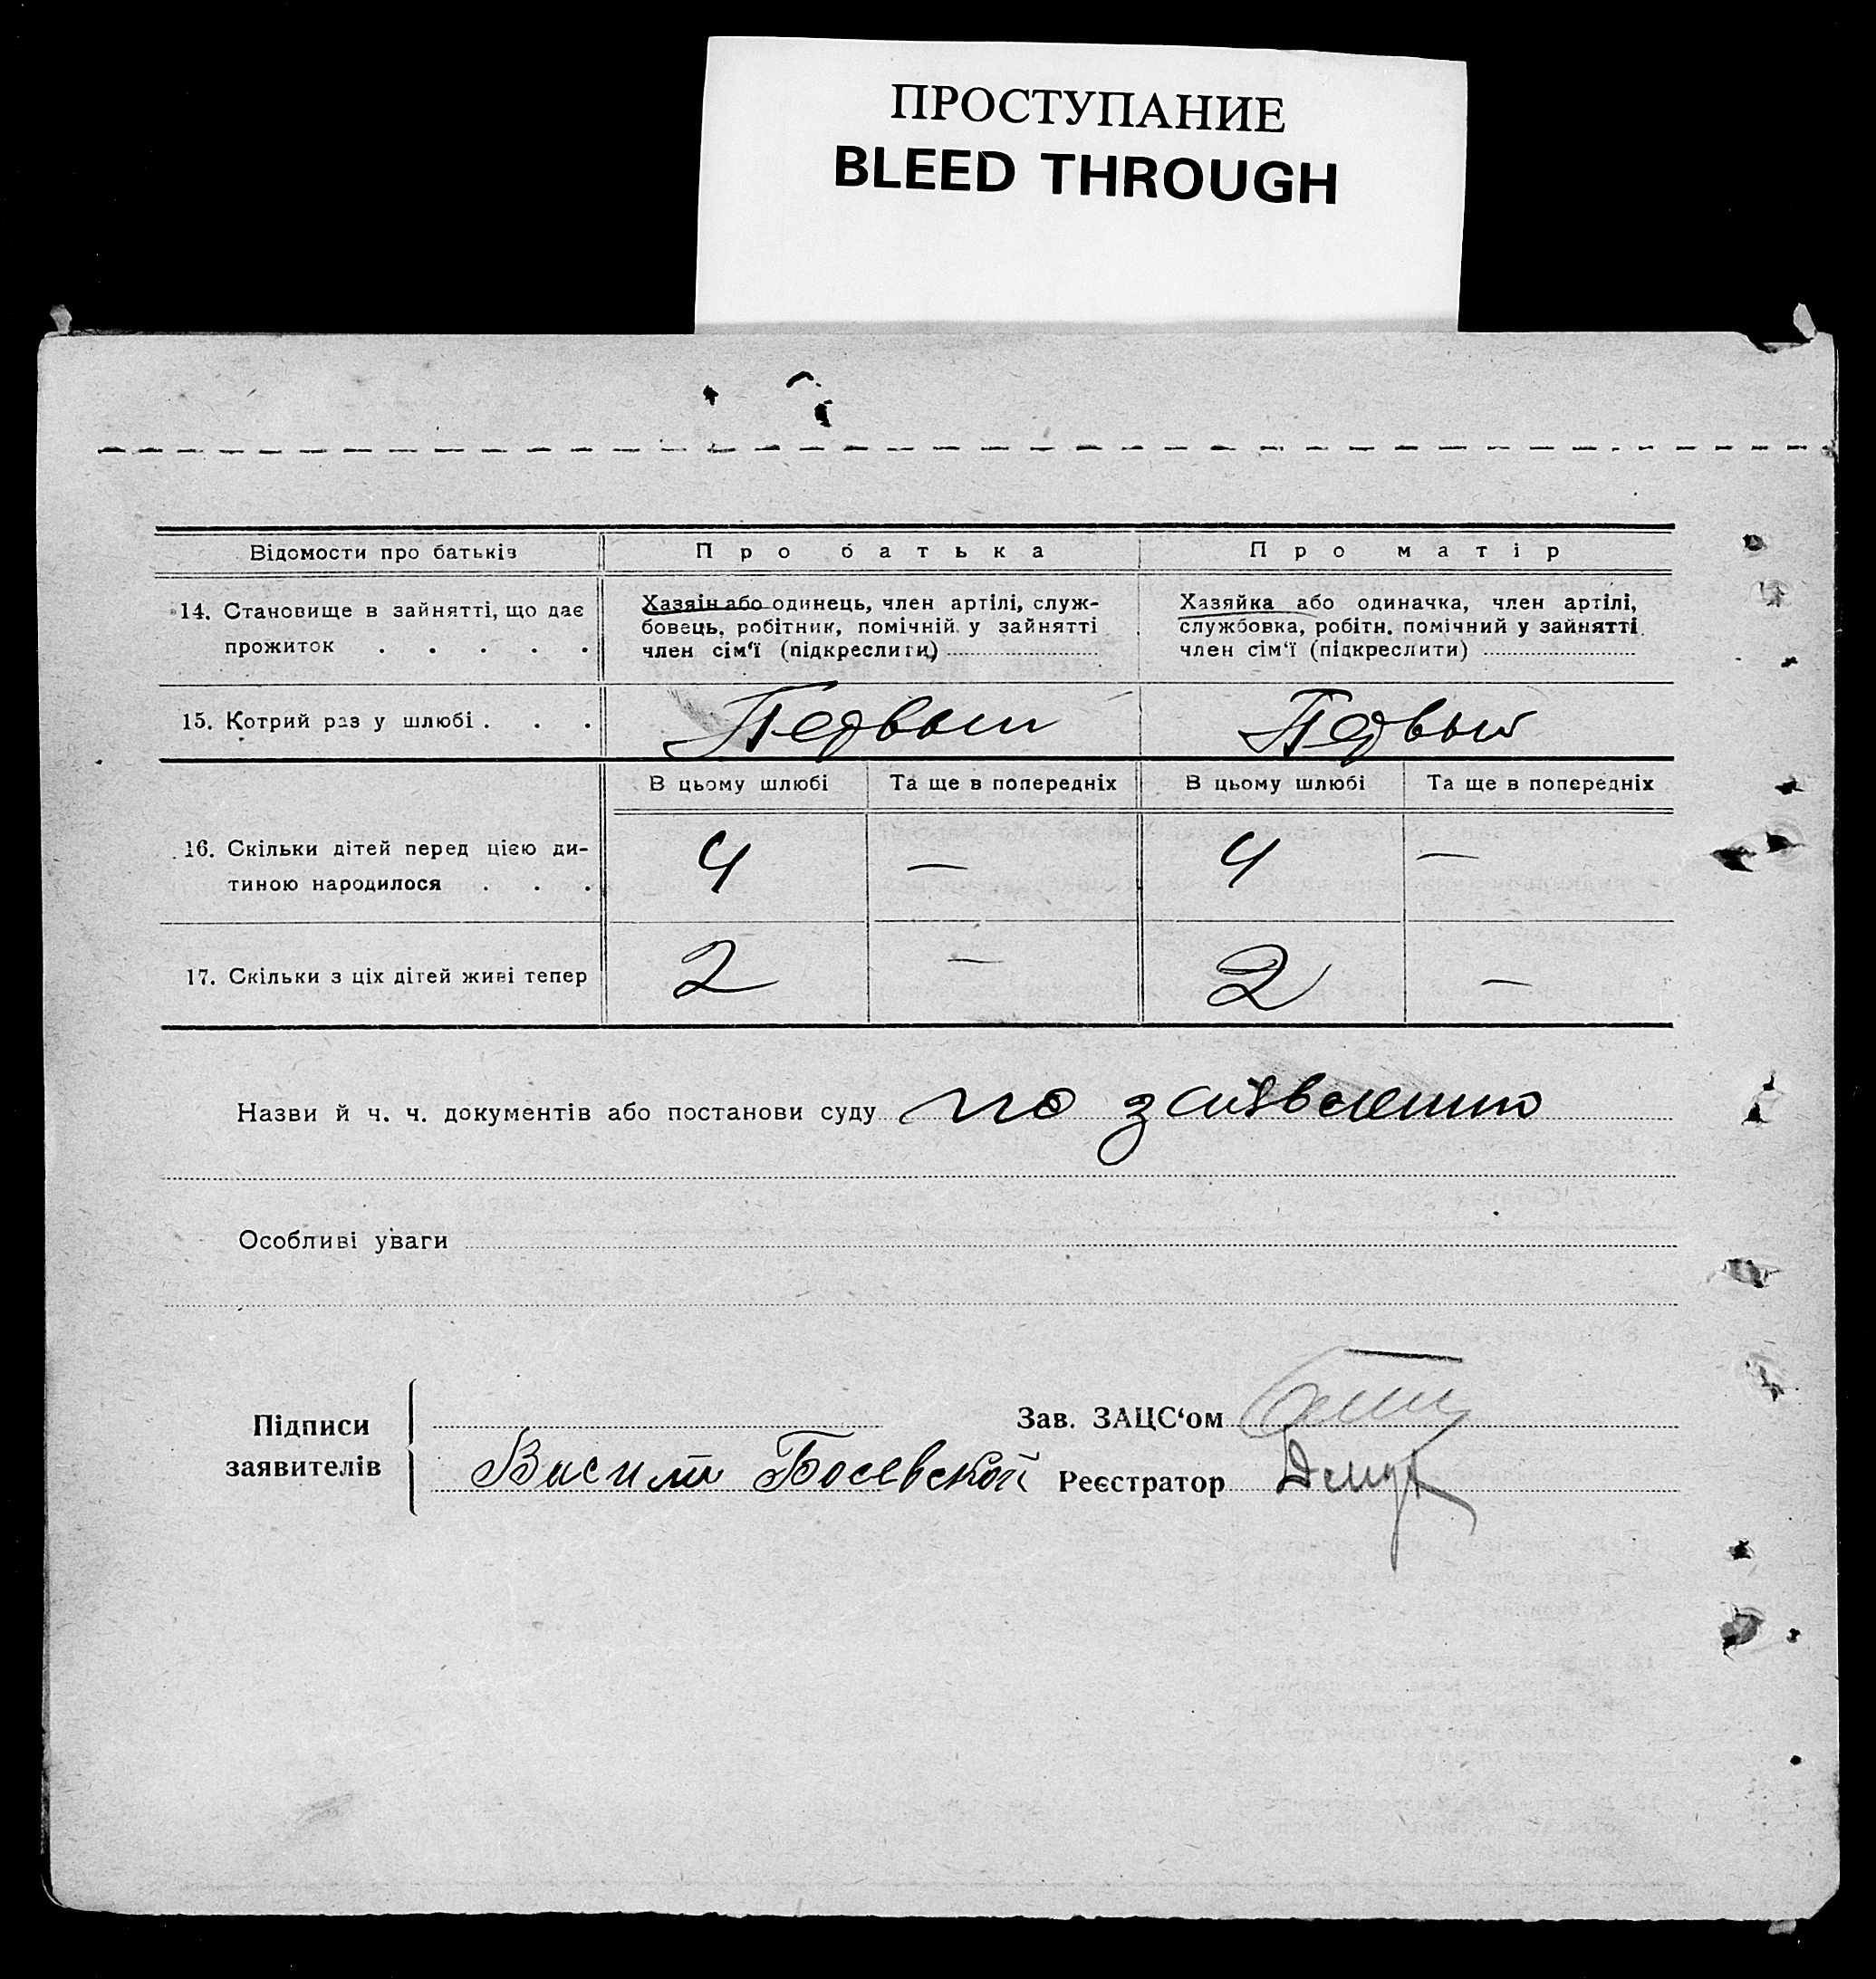 ПРОСТУПАНИЕ
BLEED THROUGH
Відомости про батьків
Про батька
Про матір
14. Становище в зайнятті, що дає
прожиток . . . . .
Хазяін або одинець, член артілі, служ-
бовець, робітник, помічній у зайнятті
член сім'ї (підкреслити)
Хазяйка або одиначка, член артілі,
службовка, робітн. помічний у зайнятті
член сім'ї (підкреслити)
15. Котрий раз у шлюбі . . .
Первый
Первый
В цьому шлюбі
Та ще в попередніх
В цьому шлюбі
Та ще в попередніх
16. Скільки дітей перед цією ди-
тиною народилося . . .
4 — 4 —
17. Скільки з ціх дітей живі тепер
2 — 2 —
Назви й ч. ч. документів або постанови суду по заявлению
Особливі уваги
Підписи
заявителів
Зав. ЗАЦС'ом
Реєстратор